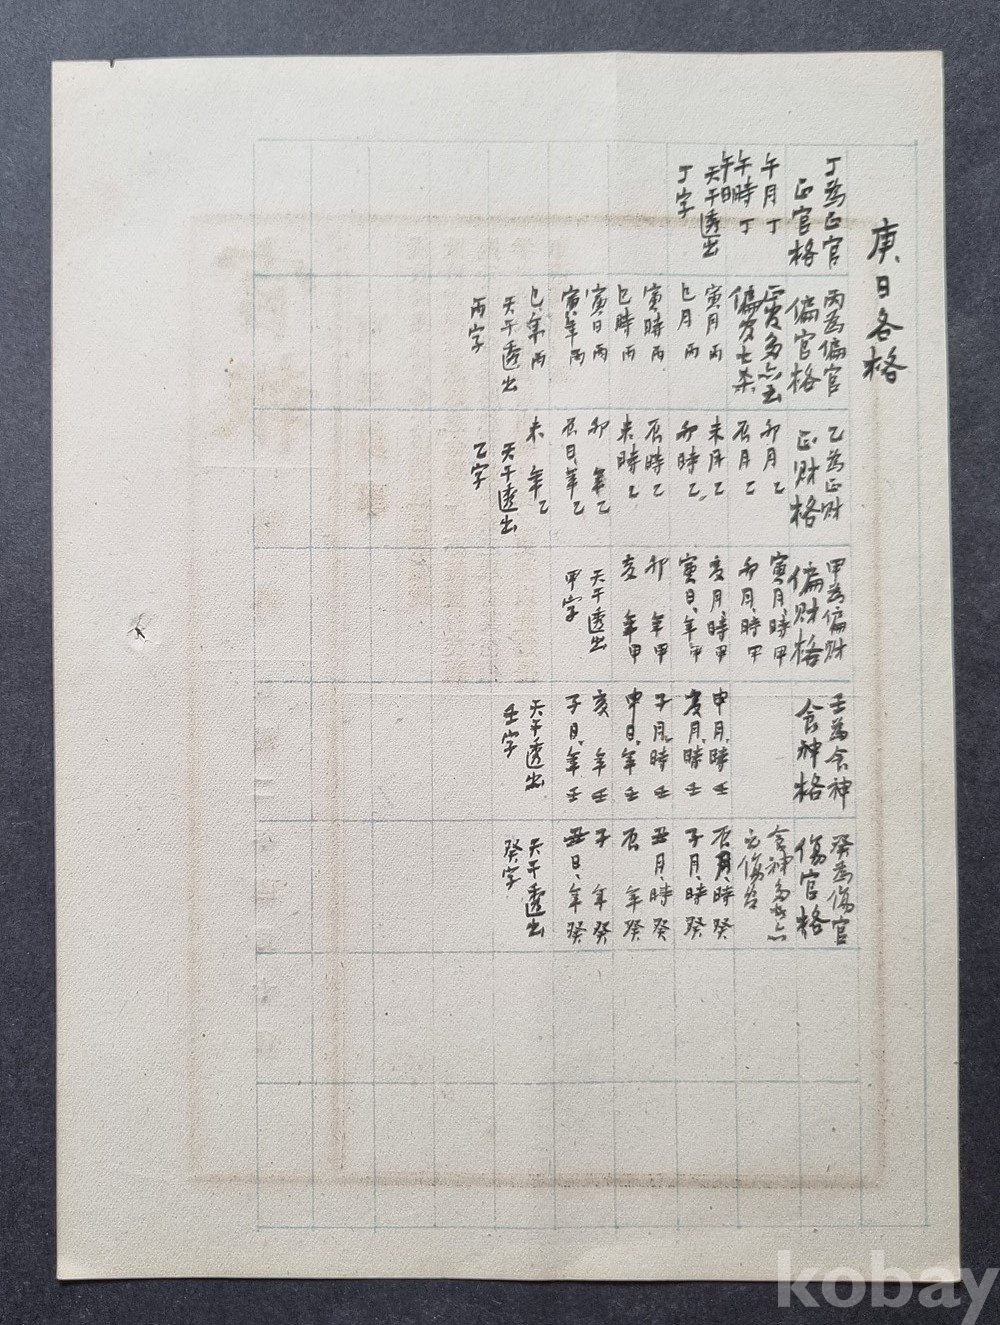 庚日各格
丁為正官
正官格
午月丁
午時丁
午日
天干透出
丁字
丙為偏官
偏官格
偏官七杀
寅月丙
巳月丙
寅時丙
巳時丙
寅日丙
寅年丙
巳年丙
天干透出
丙字
乙為正财
正财格
卯月乙
辰月乙
未月乙
卯時乙
辰時乙
未時乙
卯年乙
辰日、年乙
未年乙
天干透出
乙字
甲為偏财
偏财格
寅月時甲
卯月、時甲
亥月時甲
寅日、年甲
卯年甲
亥年甲
天干透出
甲字
壬為食神
食神格
申月、時壬
亥月、時壬
子月、時壬
申日、年壬
亥年壬
子日、年壬
天干透出
壬字
癸為傷官
傷官格
食神多
傷官
辰月、時癸
子月、時癸
丑月、時癸
辰年癸
子年癸
丑日、年癸
天干透出
癸字
kobay